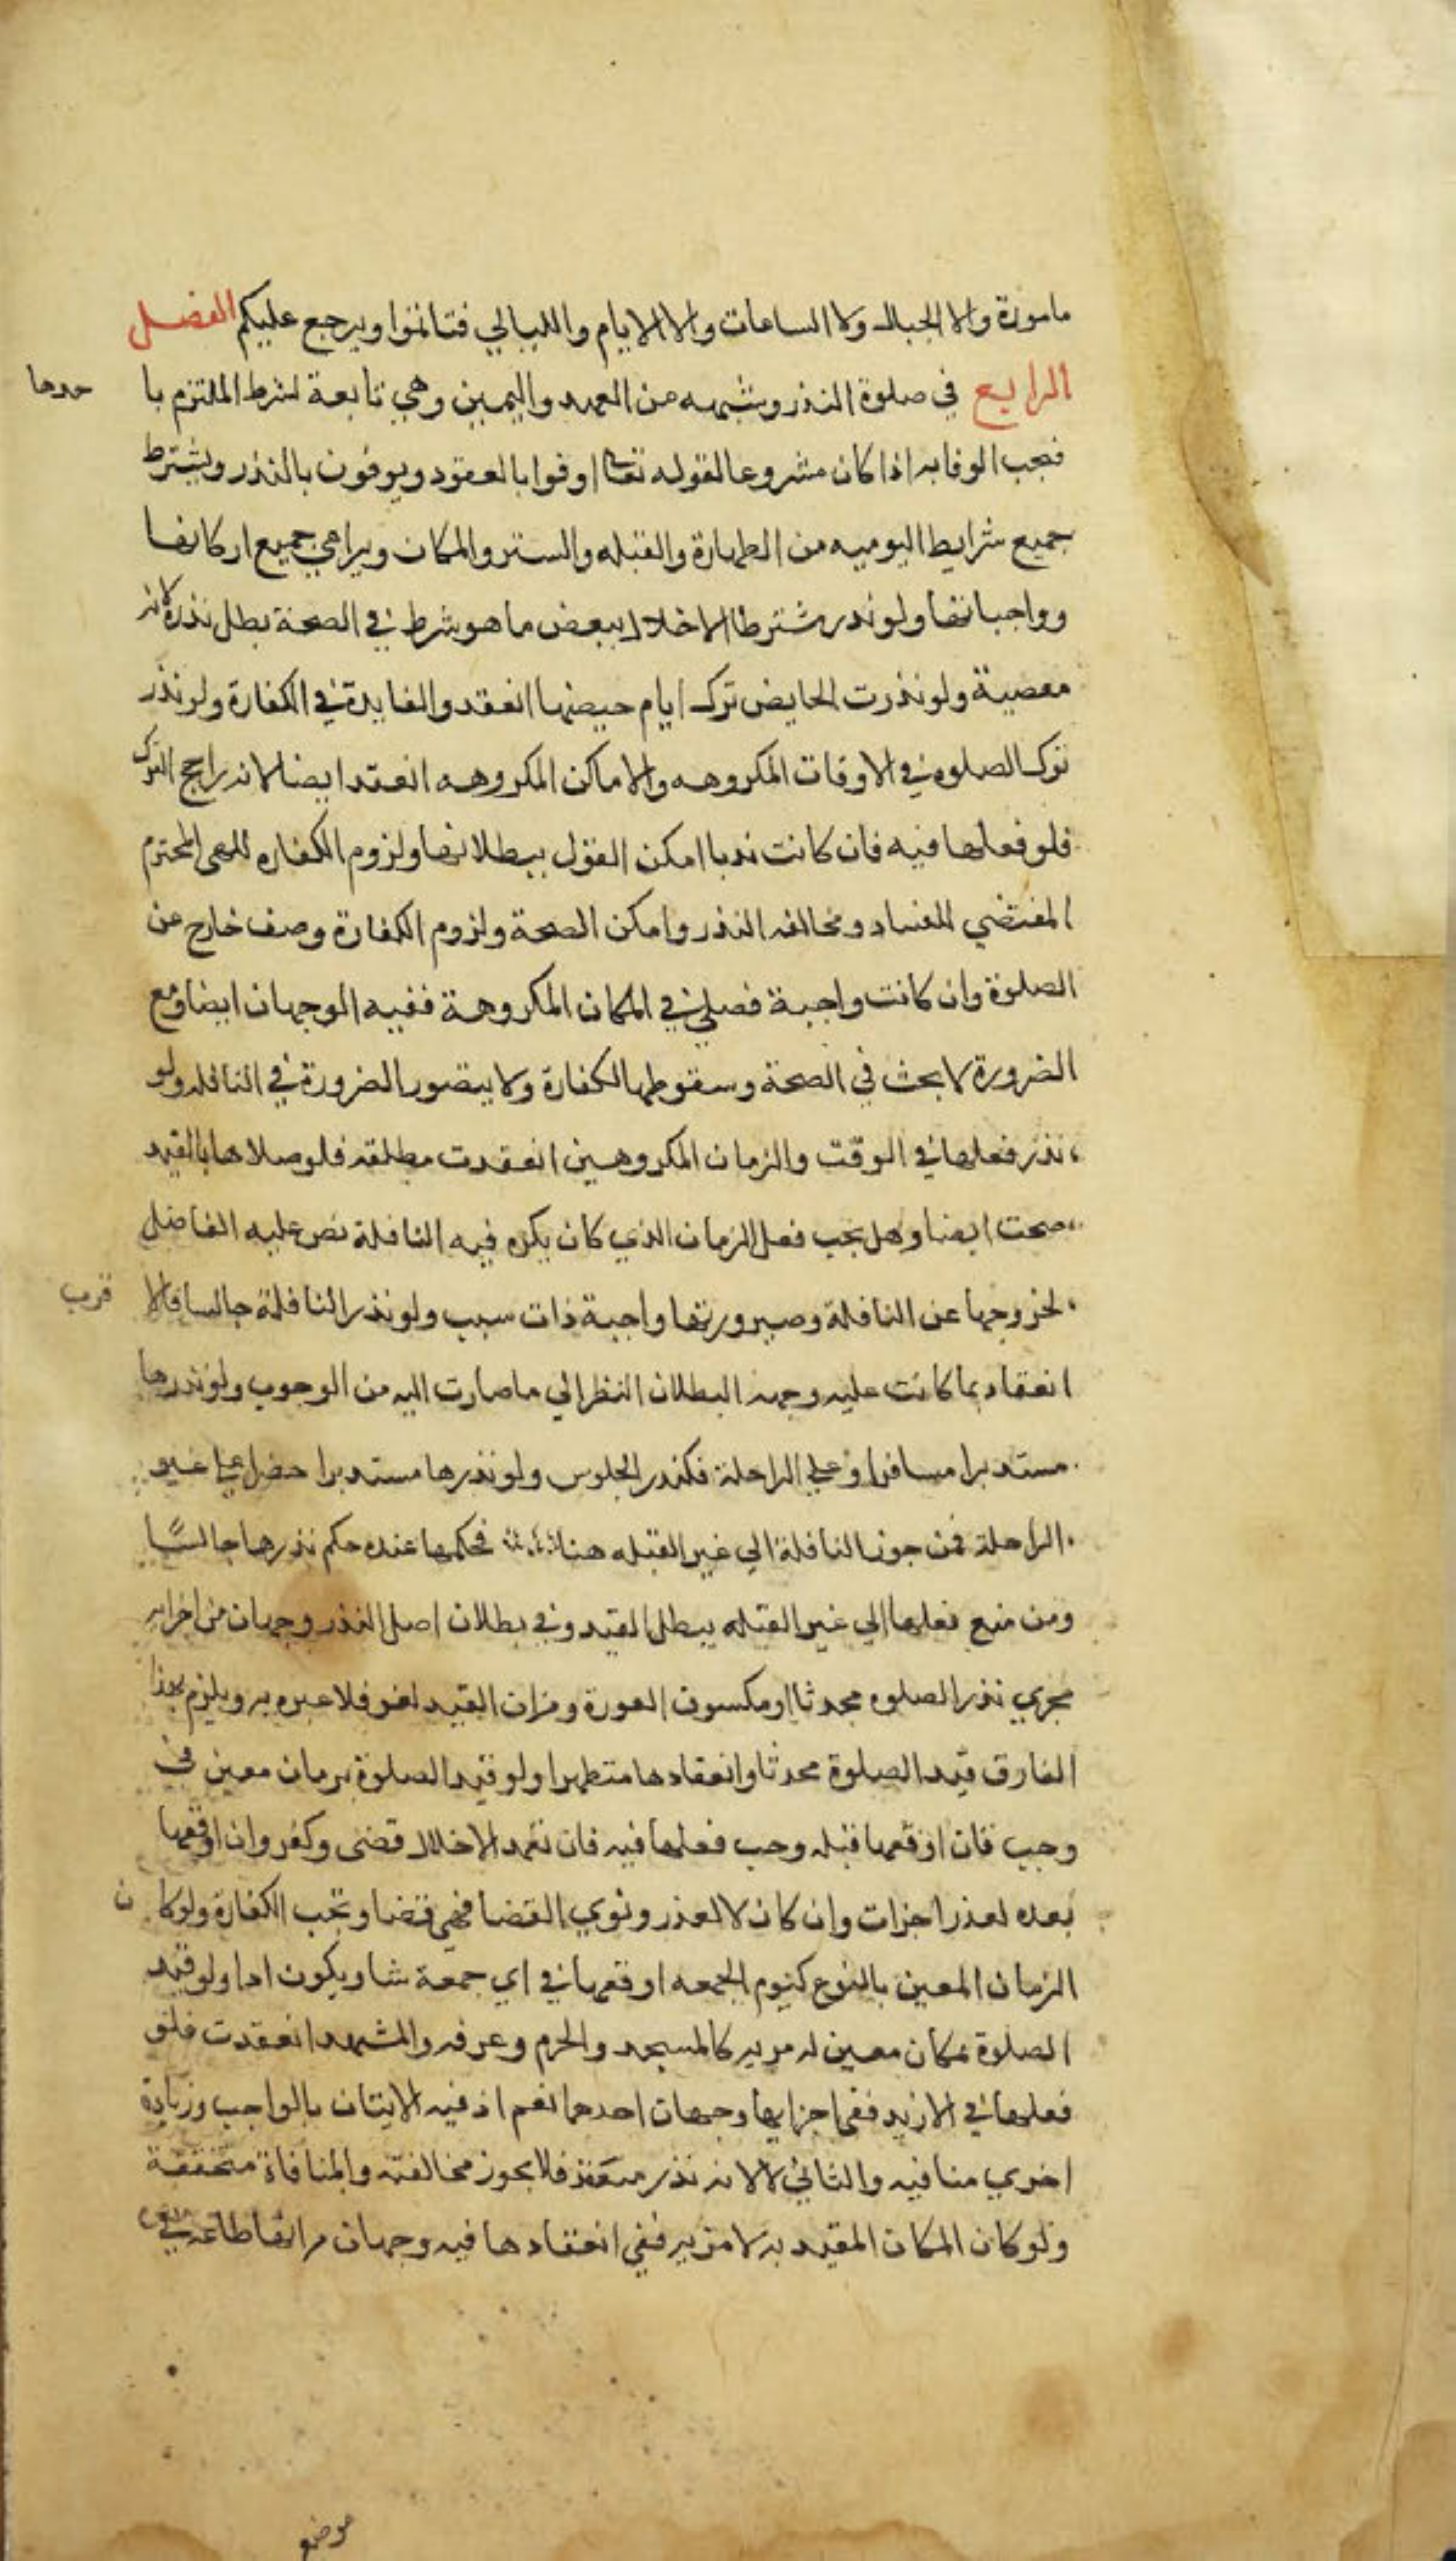 مامورة ولا الجبال ولا الساعات ولا الايام والليالي فتاثموا ويرجع عليكم الفصل
الرابع في صلوة النذر وشبهه من العهد واليمين وهي تابعة لشرط الملتزم با حدها
فيجب الوفا به اذا كان مشروعا لقوله تعا اوفوا بالعقود ويوفون بالنذر ويشترط
جميع شرايط اليوميه من الطهارة والقبله والستر والمكان ويراعي جميع اركانها
وواجباتها ولو نذر مشترطا الاخلال ببعض ما هو شرط في الصحة بطل نذره لانه
معصية ولو نذرت الحايض ترك ايام حيضها انعقد والفايدة في الكفارة ولو نذر
ترك الصلوه في الاوقات المكروهه والاماكن المكروهه انعقد ايضا لانه راجح الترك
فلو فعلها فيه فان كانت ندبا امكن القول ببطلانها ولزوم الكفاره للنهى المحترم
المقتضي للفساد ومخالفه النذر وامكن الصحة ولزوم الكفارة وصف خارج عن
الصلوة وان كانت واجبة فصلي في المكان المكروهة ففيه الوجهان ايضا ومع
الضرورة لا بحث في الصحة وسقوطها الكفارة ولا يتصور الضرورة في النافله ولو
نذر فعلها في الوقت والزمان المكروهين انعقدت مطلقه فلو صلاها بالقيد
صحت ايضا وهل يجب فعل الزمان الذي كان يكره فيه النافلة نص عليه الفاضل
لخروجها عن النافلة وصيرورتها واجبة ذات سبب ولو نذر النافلة جالسا فالا قرب
انعقاد بما كانت عليه وجهه البطلان النظر الي ما صارت اليه من الوجوب ولو نذرها
مستدبرا مسافرا او علي الراحلة فكنذر الجلوس ولو نذرها مستدبرا حضرا علي غير
الراحلة فمن جوز النافلة الي غير القبله هنا فحكمها عنده حكم نذرها جالسًا
ومن منع فعلها الي غير القبله يبطل القيد وفي بطلان اصل النذر وجهان من اجرايه
مجري نذر الصلوه محدثا او مكسوف العورة ومن ان القيد لغو فلا عبره به ويلزم بهذا
الفارق قيد الصلوة محدثا وانعقادها متطهرا ولو قيد الصلوة بزمان معين في
وجب فان اوقعها قبله وجب فعلها فيه فان تعمد الاخلال قضى وكفر وان اوقعها
بعده لعذر اجزات وان كان لا لعذر ونوي القضا فهي قضا وتجب الكفارة ولو كا ن
الزمان المعين بالنوع كيوم الجمعه اوقعها في اي جمعة شا ويكون ادا ولو قيد
الصلوة بمكان معين له مزيه كالمسجد والحرم وعرفه والمشهد انعقدت فلو
فعلها في الازيد ففي اجزايها وجهان احدهما نعم اذ فيه الاتيان بالواجب وزيادة
اخري منافيه والثاني لا لانه نذر منعقد فلا يجوز مخالفته والمنافاة متحققة
ولو كان المكان المقيد به لا مزيه ففي انعقادها فيه وجهان من انها طاعه في
موضع